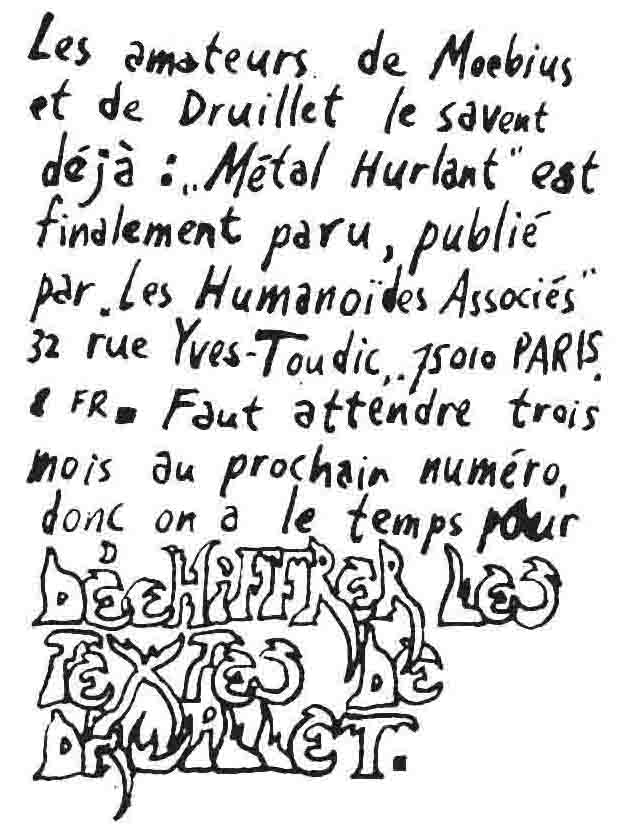 Les amateurs de Moebius
et de Druillet le savent
déjà : „Métal Hurlant" est
finalement paru, publié
par „Les Humanoïdes Associés"
32 rue Yves-Toudic,. 75010 PARIS.
8 FR. Faut attendre trois
mois au prochain numéro,
donc on a le temps pour
DÉCHIFFRER LES
TEXTES DE
DRUILLET.